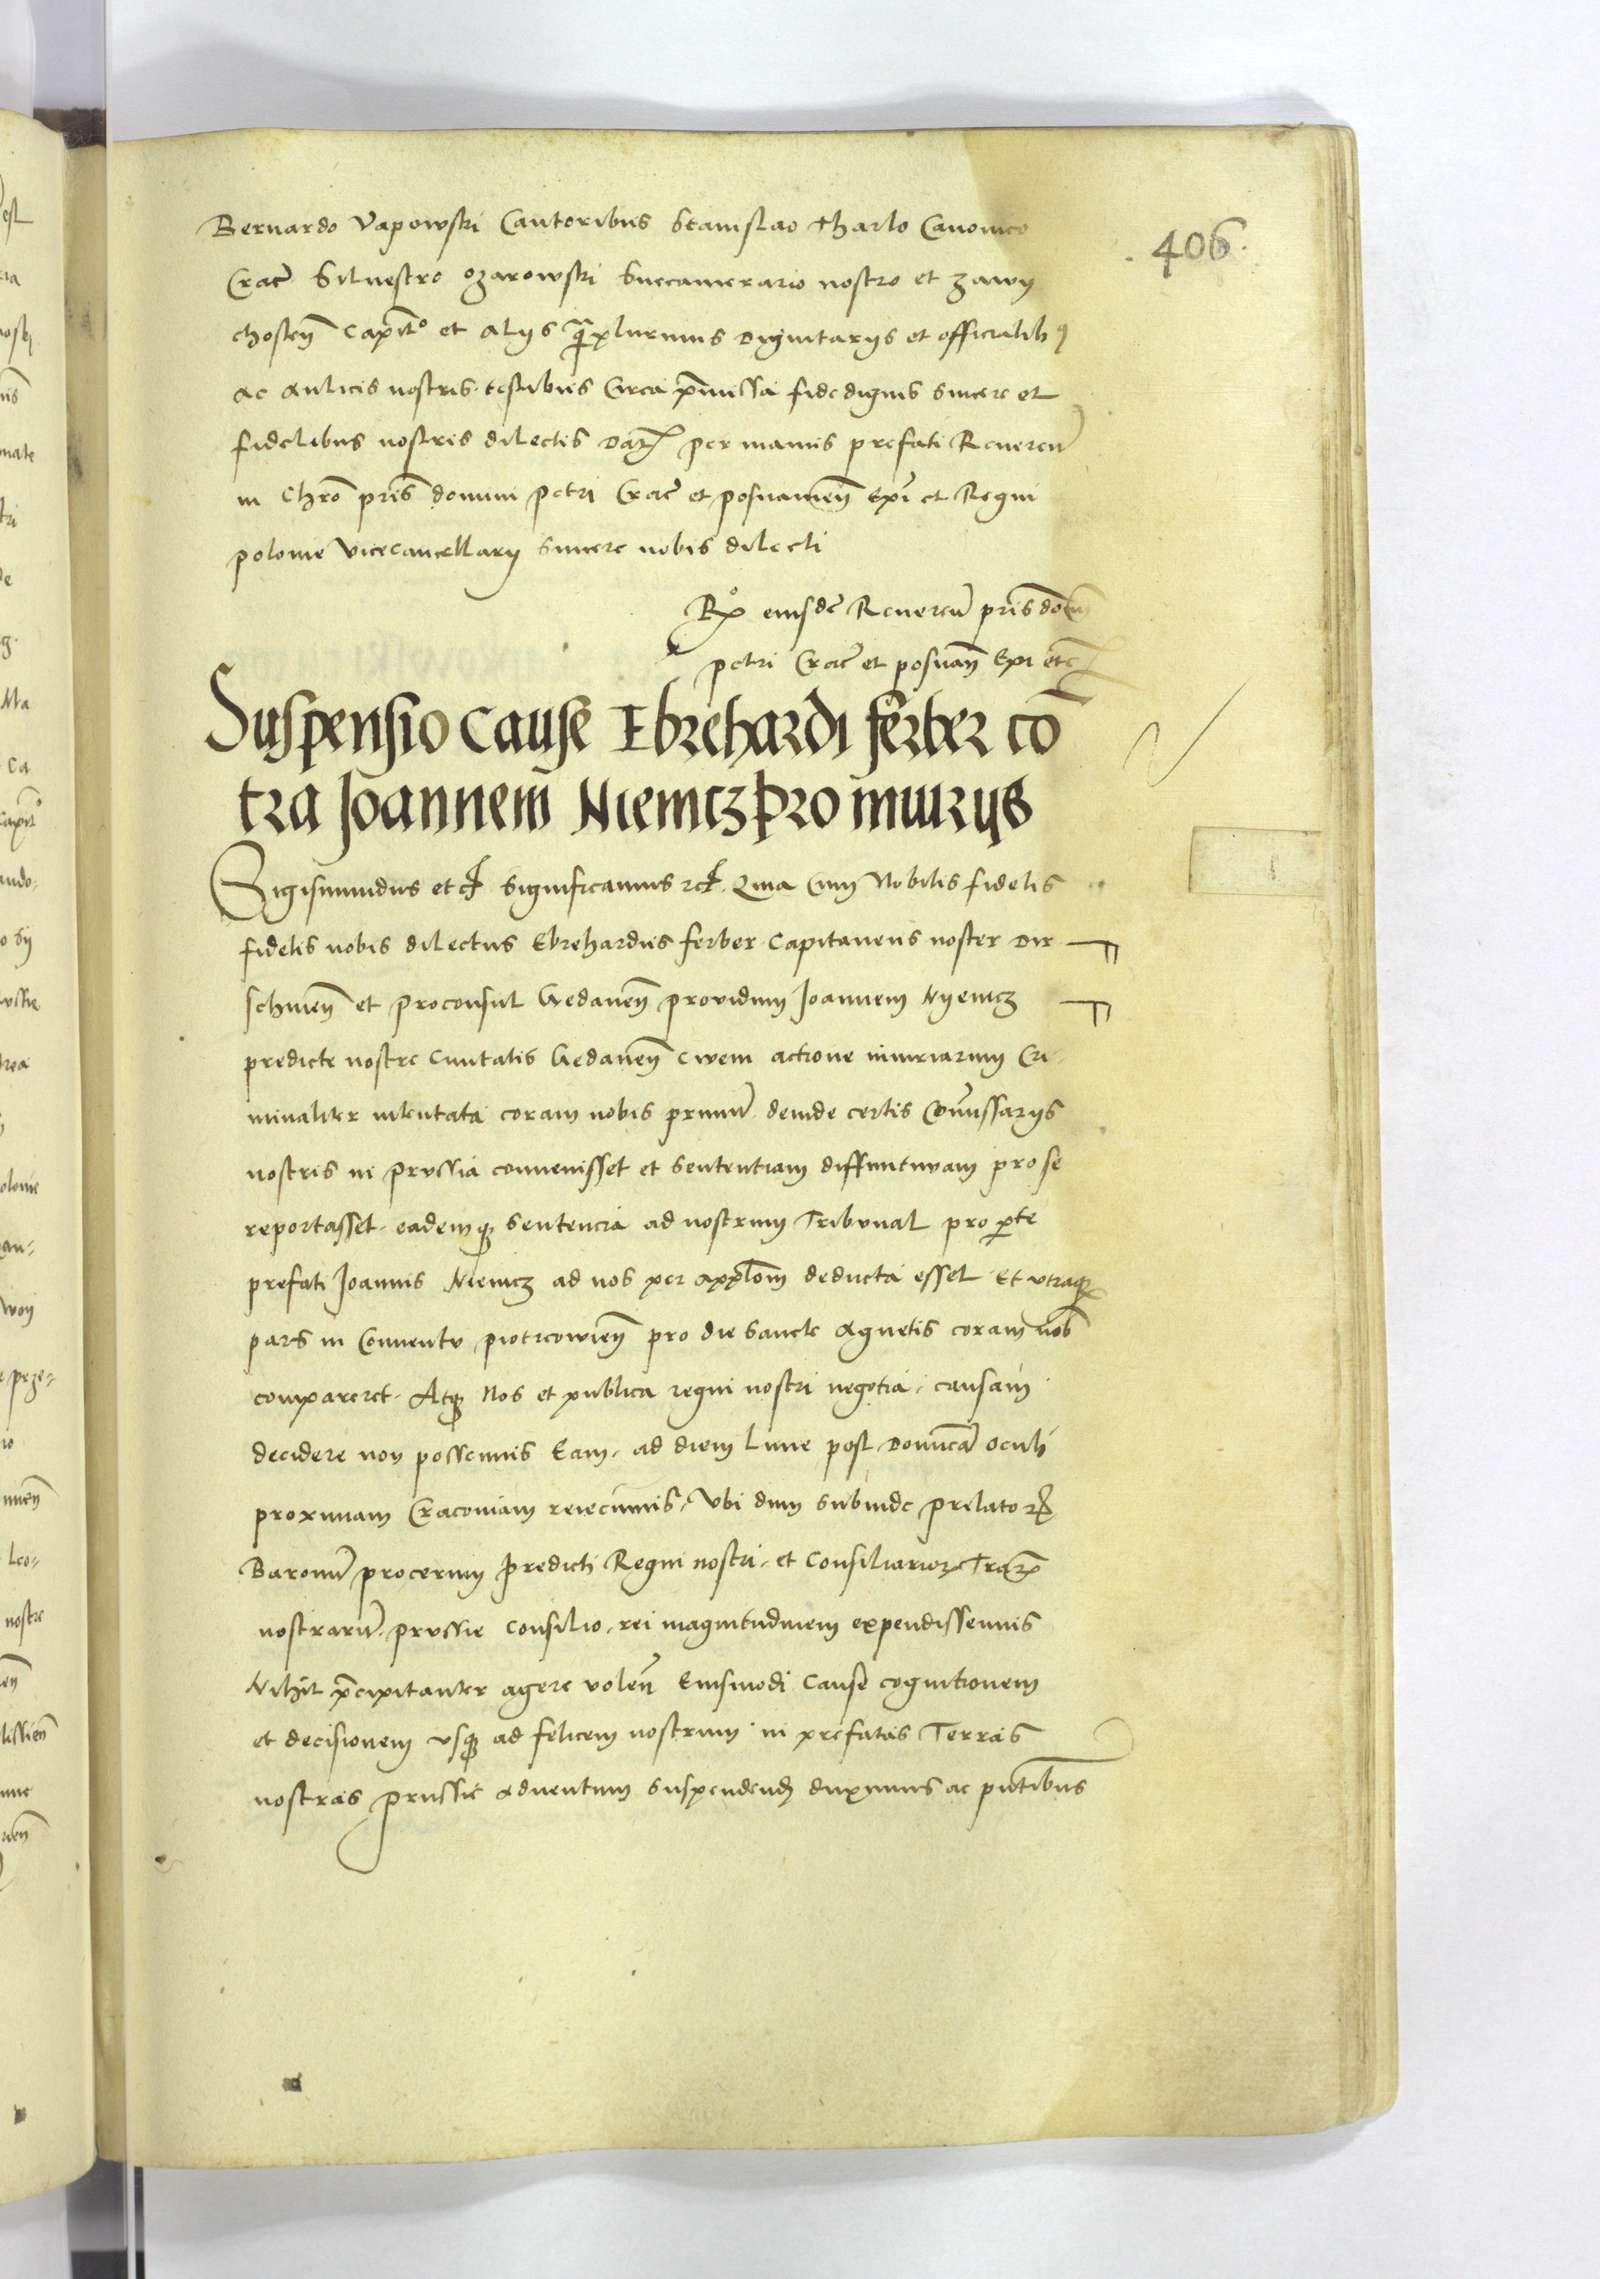 406
Bernardo Vapowski Cantoribus Stanislao Tharlo Canonico
Crac̄ Silvestro Ozarowski Succamerario nostro et zawy
chosteñ Capit̄o et aliis q̄ꝫplurimis dignitariis et officialibꝫ
ac Aulicis nostris testibus Circa p̄missa fidedignis sincere et
fidelibus nostris dilectis Dat̄ per manus prefati Reveren̄
in Chr̄o pr̄is domini Petri Crac̄ et posnanieñ Ep̄i et Regni
polonie vicecancellarij sincere nobis dilecti
Rᵒ eiusdē Reveren̄ pr̄is domī
petri Crac̄ et posnañ Ep̄i etc̄
Suspensio cause Ebrehardi ferber cō
tra Joannem Niemcz pro iniuriis
Sigismundus etc̄ Significamus etc̄ Quia Cum Nobilis fidelis
fidelis nobis dilectus Ebrehardus ferber Capitaneus noster Dir
schmeñ et Proconsul Gedaneñ providum Joannem Nyemcz
predicte nostre Civitatis Gedaneñ Civem actione iniuriarum Cri
minaliter intentata coram nobis primū deinde certis Cōmissariis
nostris in Prussia convenisset et Sententiam diffinitivam pro se
reportasset eademqꝫ Sentencia ad nostrum Tribunal pro ꝑte
prefati Joannis Niemcz ad nos per appl̄om deducta esset Et utraqꝫ
pars in Conventu piotrcowieñ pro die Sancte Agnetis coram nob̄
compareret Atqꝫ Nos et publica regni nostri negotia causam
decidere non possemus Eam ad diem Lune post Domīcā Oculi
proximam Cracoviam reiecimus Ubi dum subinde Prelatorꝝ
Baronū procerum predicti Regni nostri et Consiliariorꝝ Trarꝝ
nostrarū Prussie Consilio rei magnitudinem expendissemus
Nihil p̄cipitanter agere voleñ Eiusmodi Cause cognitionem
et decisionem usqꝫ ad felicem nostrum in prefatas Terras
nostras Prussie adventum suspendend̄ duximus ac pn̄tibus